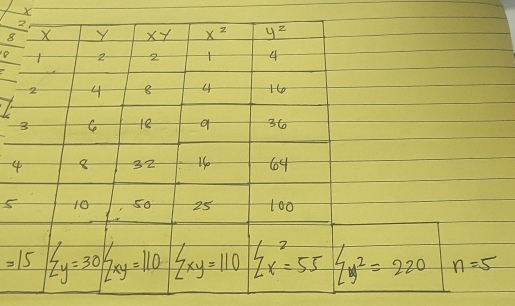 x
2
8 X Y XY X² y²
18 1 2 2 1 4
2 4 8 4 16
3 6 18 9 36
4 8 32 16 64
5 10 50 25 100
=15 Σy=30 Σxy=110 Σxy=110 Σx²=55 Σy²=220 n=5